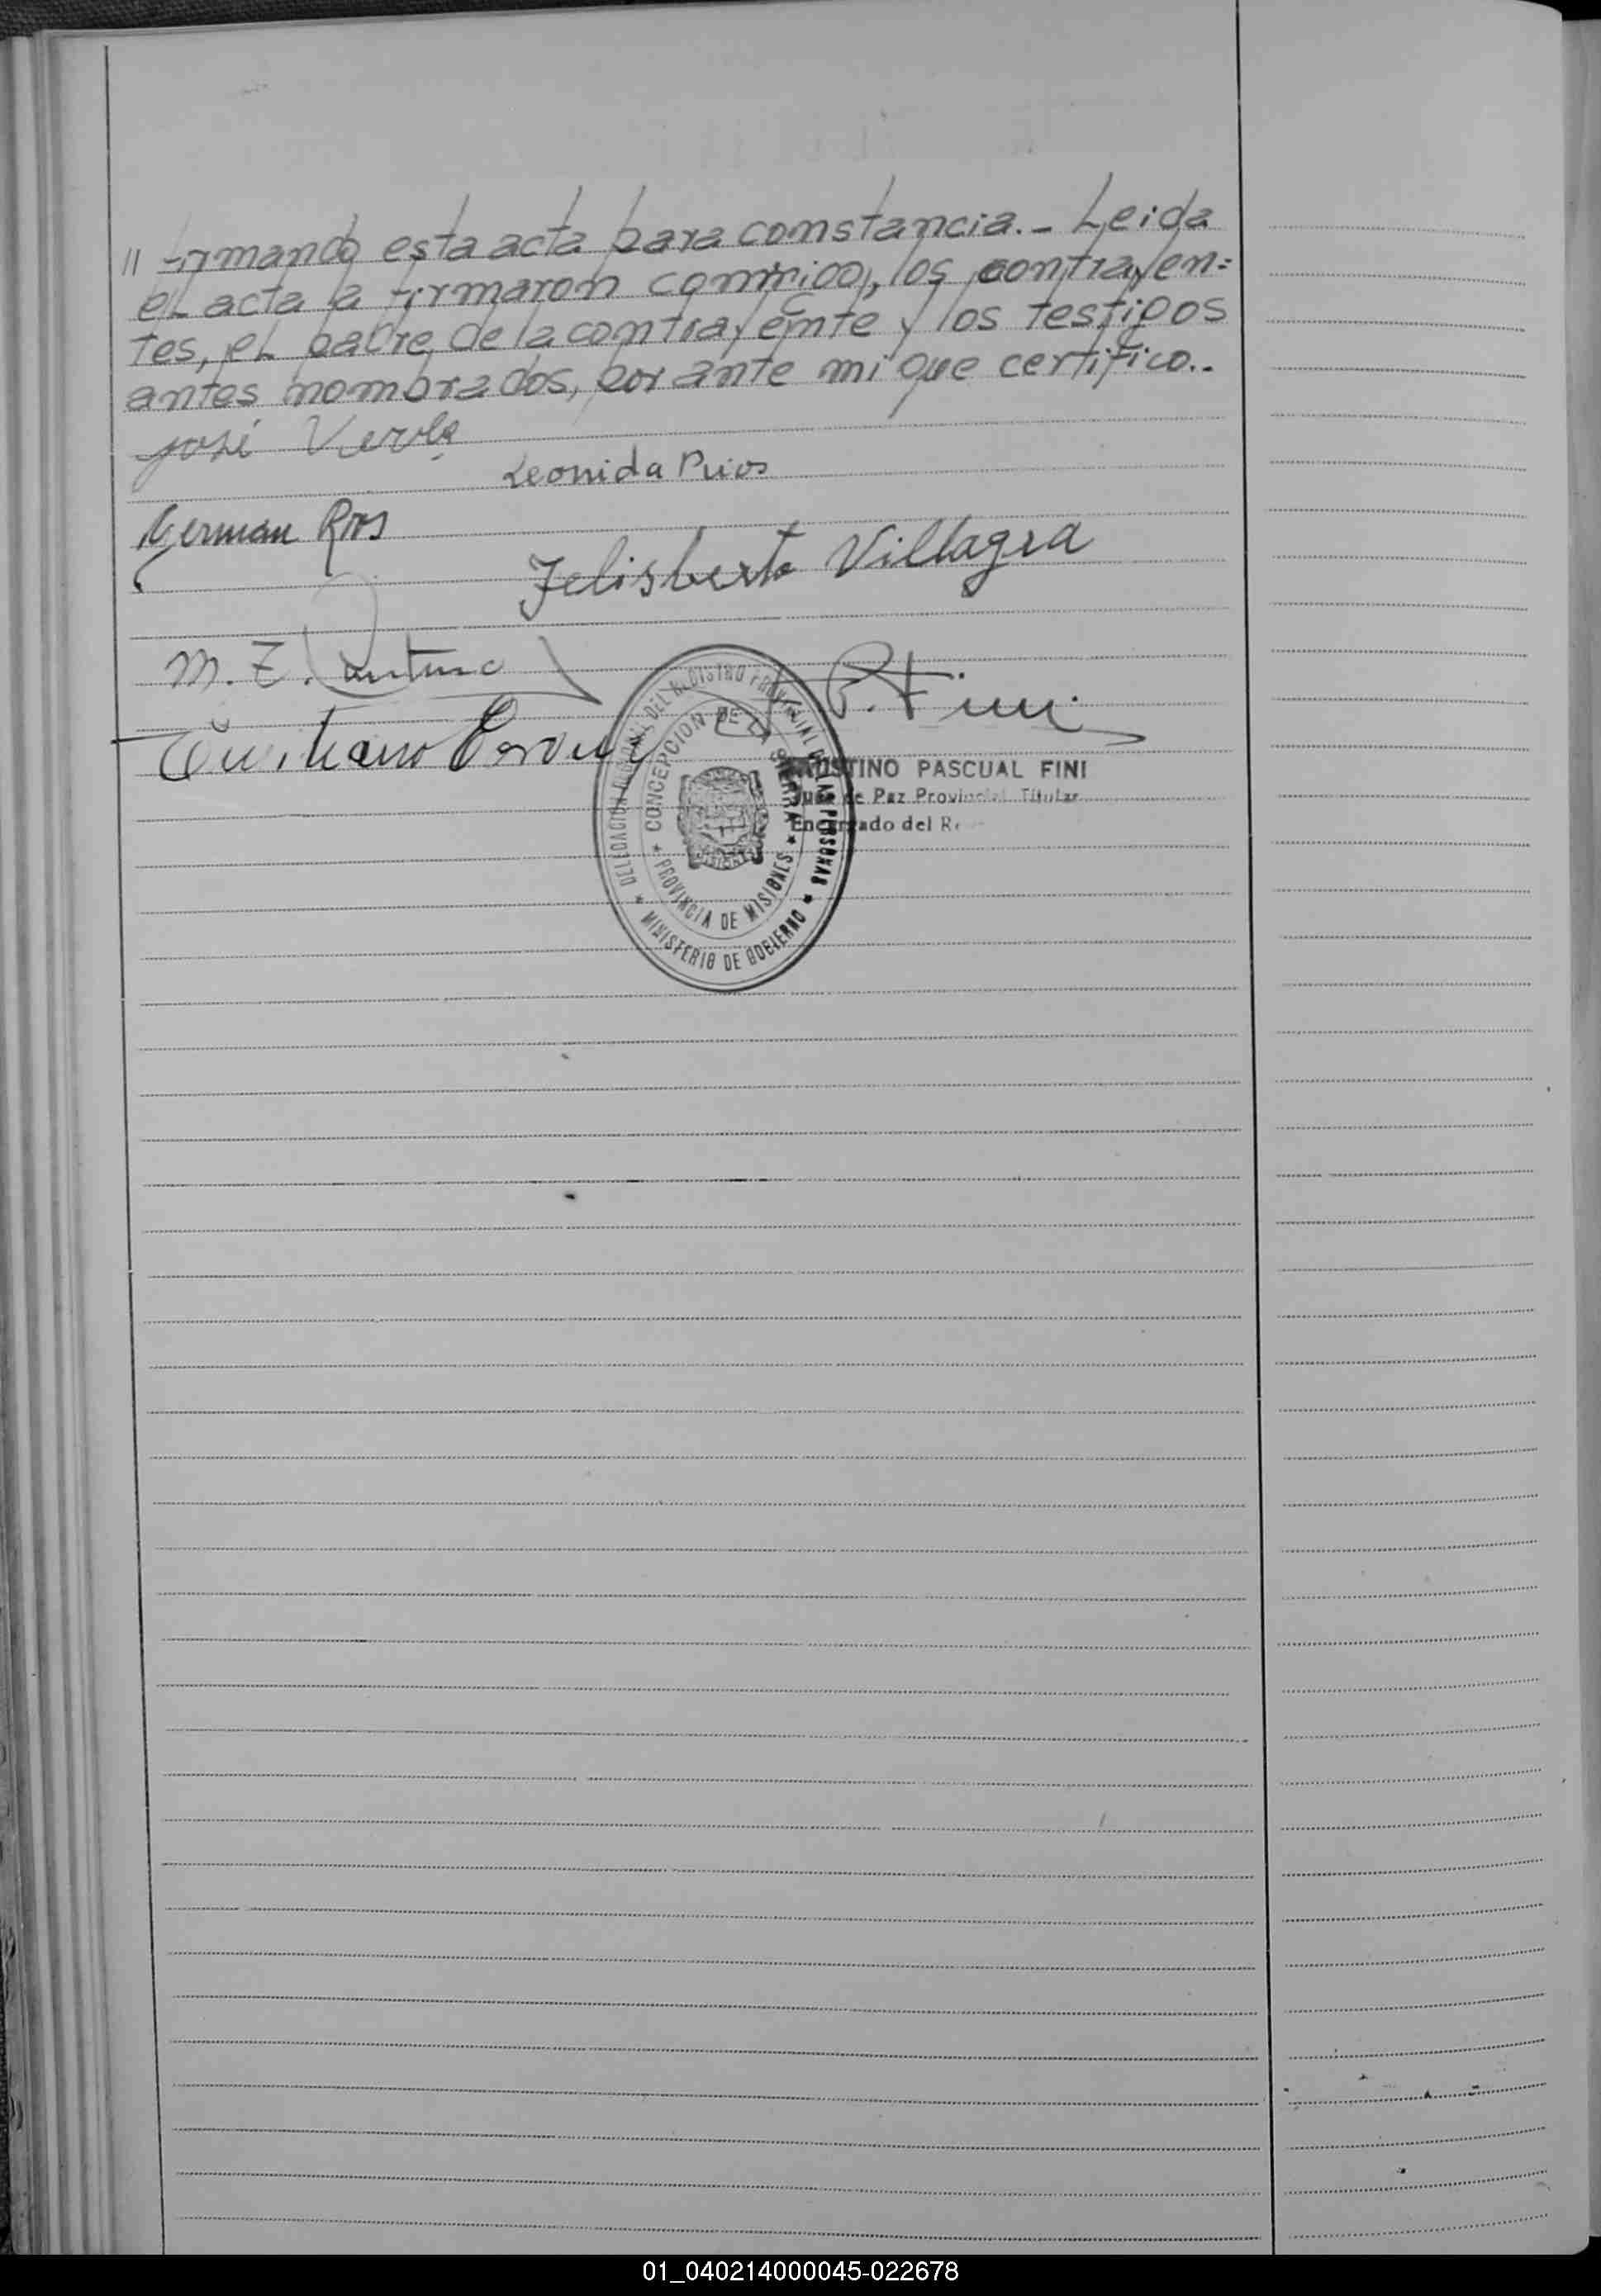 // firmando esta acta para constancia.- Leida
el acta la firmaron conmigo, los contrayen=
tes, el padre de la contrayente y los testigos
antes nombrados, por ante mi que certifico.-
José
Leonida Rios
German Rios
Felisberto Villagra
M. Z.
P. Fini
FAUSTINO PASCUAL FINI
Juez de Paz Provincial Titular
Encargado del
DELEGACION DEL REGISTRO PROVINCIAL DE LAS PERSONAS
CONCEPCION DE LA SIERRA
PROVINCIA DE MISIONES
MINISTERIO DE GOBIERNO
01_040214000045-022678